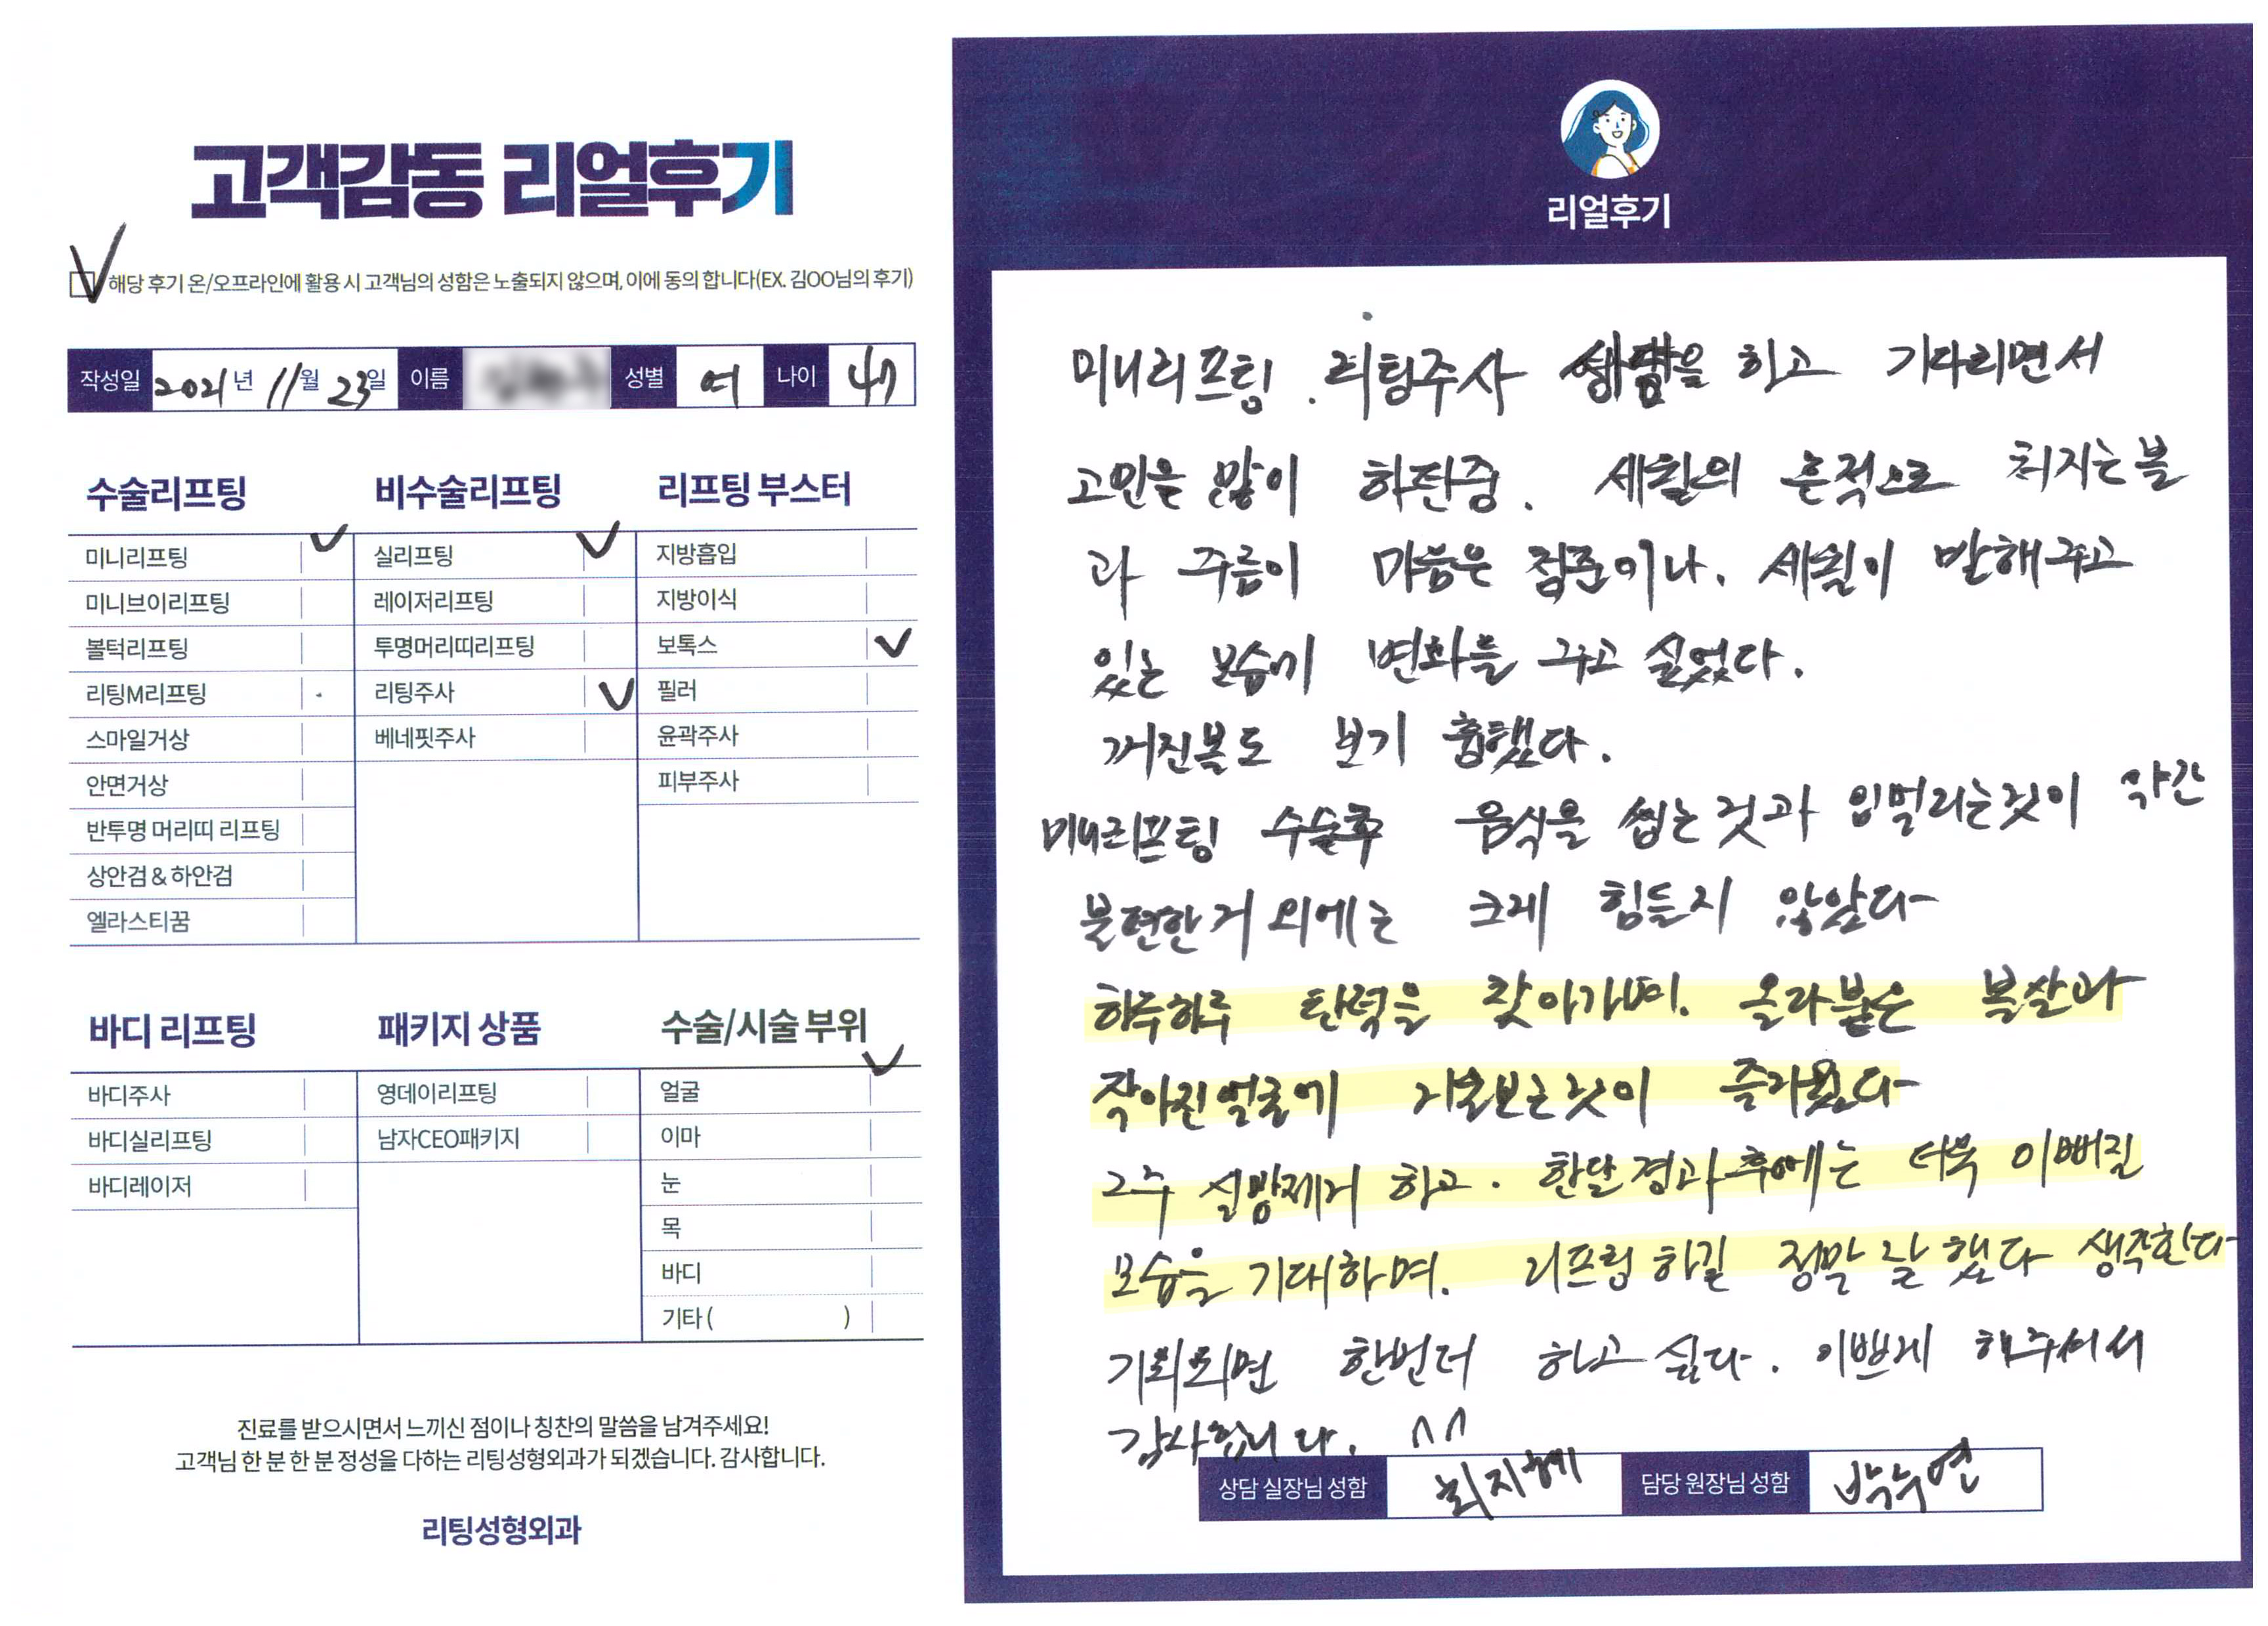 고객감동 리얼후기
해당 후기 온/오프라인에 활용 시 고객님의 성함은 노출되지 않으며, 이에 동의 합니다(EX. 김OO님의 후기)
작성일 2021년 11월 23일 이름 성별 여 나이 47
수술리프팅
미니리프팅
미니브이리프팅
볼턱리프팅
리팅M리프팅
스마일거상
안면거상
반투명 머리띠 리프팅
상안검 & 하안검
엘라스티꿈
비수술리프팅
실리프팅
레이저리프팅
투명머리띠리프팅
리팅주사
베네핏주사
리프팅 부스터
지방흡입
지방이식
보톡스
필러
윤곽주사
피부주사
바디 리프팅
바디주사
바디실리프팅
바디레이저
패키지 상품
영데이리프팅
남자CEO패키지
수술/시술 부위
얼굴
이마
눈
목
바디
기타 ( )
진료를 받으시면서 느끼신 점이나 칭찬의 말씀을 남겨주세요!
고객님 한 분 한 분 정성을 다하는 리팅성형외과가 되겠습니다. 감사합니다.
리팅성형외과
리얼후기
미니리프팅. 리팅주사 하고 기다리면서
고민을 많이 하던중. 세월의 흔적으로 처지는볼
과 주름이 마음은 청춘이나. 세월이 말해주고
있는 모습에 변화를 주고 싶었다.
꺼진볼도 보기 흉했다.
미니리프팅 수술후 음식을 씹는것과 입벌리는것이 약간
불편한거 외에는 크게 힘들지 않았다
하루하루 탄력을 찾아가며. 올라붙은 볼살과
작아진얼굴에 거울보는것이 즐거웠다
2주 실밥제거 하고. 한달경과후에는 더욱 이뻐질
모습을 기대하며. 리프팅 하길 정말 잘했다 생각한다
기회되면 한번더 하고 싶다. 이쁘게 해주셔서
감사합니다. ^^
상담 실장님 성함 최지혜 담당 원장님 성함 박수연